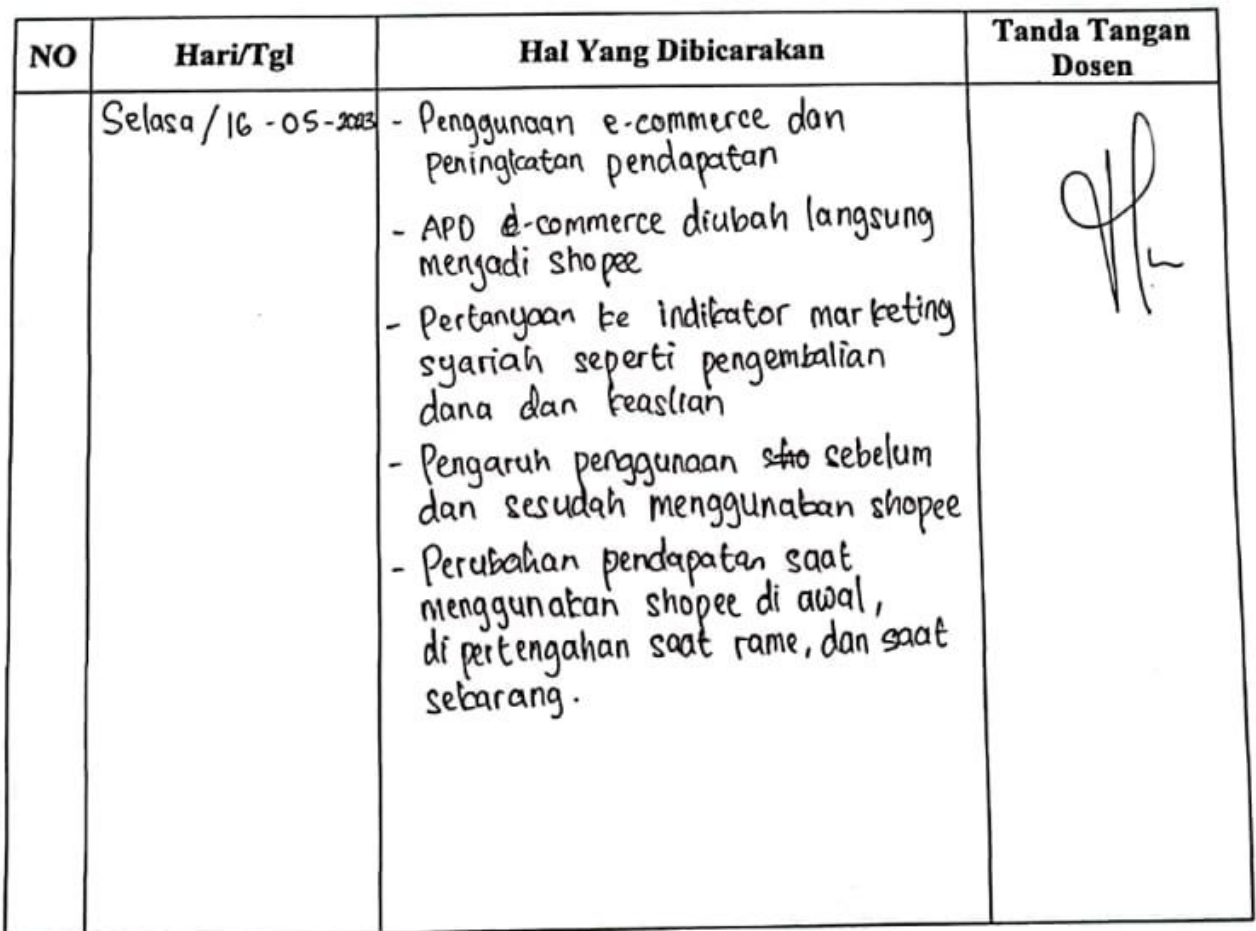 NO Hari/Tgl Hal Yang Dibicarakan Tanda Tangan
Dosen
Selasa / 16 - 05 - 2023 - Penggunaan e-commerce dan
peningkatan pendapatan
- APD e-commerce diubah langsung
menjadi shopee
- Pertanyaan ke indikator marketing
syariah seperti pengembalian
dana dan keaslian
- Pengaruh penggunaan sho sebelum
dan sesudah menggunakan shopee
- Perubahan pendapatan saat
menggunakan shopee di awal,
di pertengahan saat rame, dan saat
sekarang.